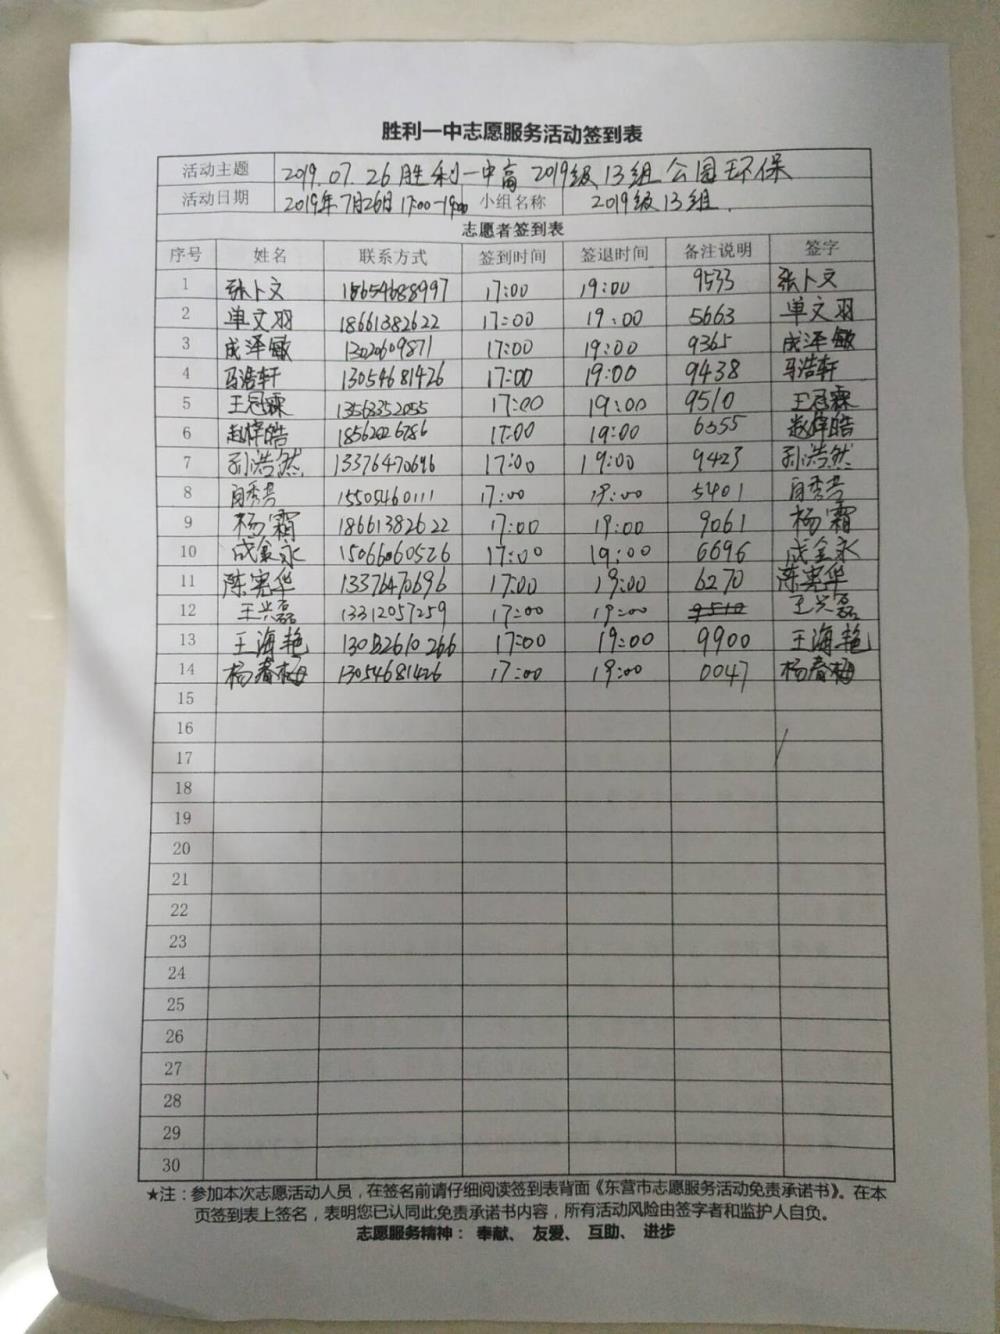 胜利一中志愿服务活动签到表
活动主题 2019.07.26胜利一中高2019级13组公园环保
活动日期 2019年7月26日17:00-19:00 小组名称 2019级13组.
志愿者签到表
序号 姓名 联系方式 签到时间 签退时间 备注说明 签字
1 张卜文 18654688997 17:00 19:00 9533 张卜文
2 单文羽 18661382622 17:00 19:00 5663 单文羽
3 成泽敏 13020609871 17:00 19:00 9365 成泽敏
4 马浩轩 13054681426 17:00 19:00 9438 马浩轩
5 王冠霖 13563352055 17:00 19:00 9510 王冠霖
6 赵梓皓 17:00 19:00 6355 赵梓皓
7 孙浩然 13376470696 17:00 19:00 9423 孙浩然
8 15505460111 17:00 19:00 5401
9 杨霜 18661382622 17:00 19:00 9061 杨霜
10 成金永 15066060526 17:00 19:00 6696 成金永
11 陈宪华 13376470696 17:00 19:00 6270 陈宪华
12 王兴磊 13312057259 17:00 19:00 9510 王兴磊
13 王海艳 17:00 19:00 9900 王海艳
14 杨春梅 13054681426 17:00 19:00 0047 杨春梅
15
16
17
18
19
20
21
22
23
24
25
26
27
28
29
30
★注：参加本次志愿活动人员，在签名前请仔细阅读签到表背面《东营市志愿服务活动免责承诺书》。在本
页签到表上签名，表明您已认同此免责承诺书内容，所有活动风险由签字者和监护人自负。
志愿服务精神： 奉献、 友爱、 互助、 进步